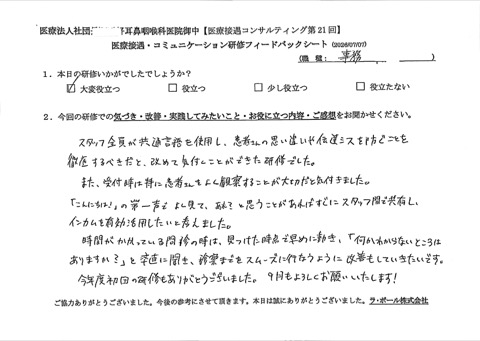 医療法人社団 耳鼻咽喉科医院御中【医療接遇コンサルティング第21回】
医療接遇・コミュニケーション研修フィードバックシート (2026/07/07)
(職種: 事務 )
1. 本日の研修いかがでしたでしょうか?
☑ 大変役立つ □ 役立つ □ 少し役立つ □ 役立たない
2. 今回の研修での気づき・改善・実践してみたいこと・お役に立つ内容・ご感想をお聞かせください。
スタッフ全員が共通言語を使用し、患者さんの思い違いや伝達ミスを防ぐことを
徹底するべきだと、改めて気付くことができた研修でした。
また、受付時は特に患者さんをよく観察することが大切だと気付きました。
「こんにちは!」の第一声でよく見て、あれ?と思うことがあればすぐにスタッフ間で共有し、
インカムを有効活用したいと考えました。
時間がかかっている問診の時は、見つけた時点で早めに動き、「何かわからないところは
ありますか?」と率直に聞き、診察までをスムーズに行なうように改善もしていきたいです。
今年度初回の研修もありがとうございました。9月もよろしくお願いいたします!
ご協力ありがとうございました。今後の参考にさせて頂きます。本日は誠にありがとうございました。ラ・ポール株式会社